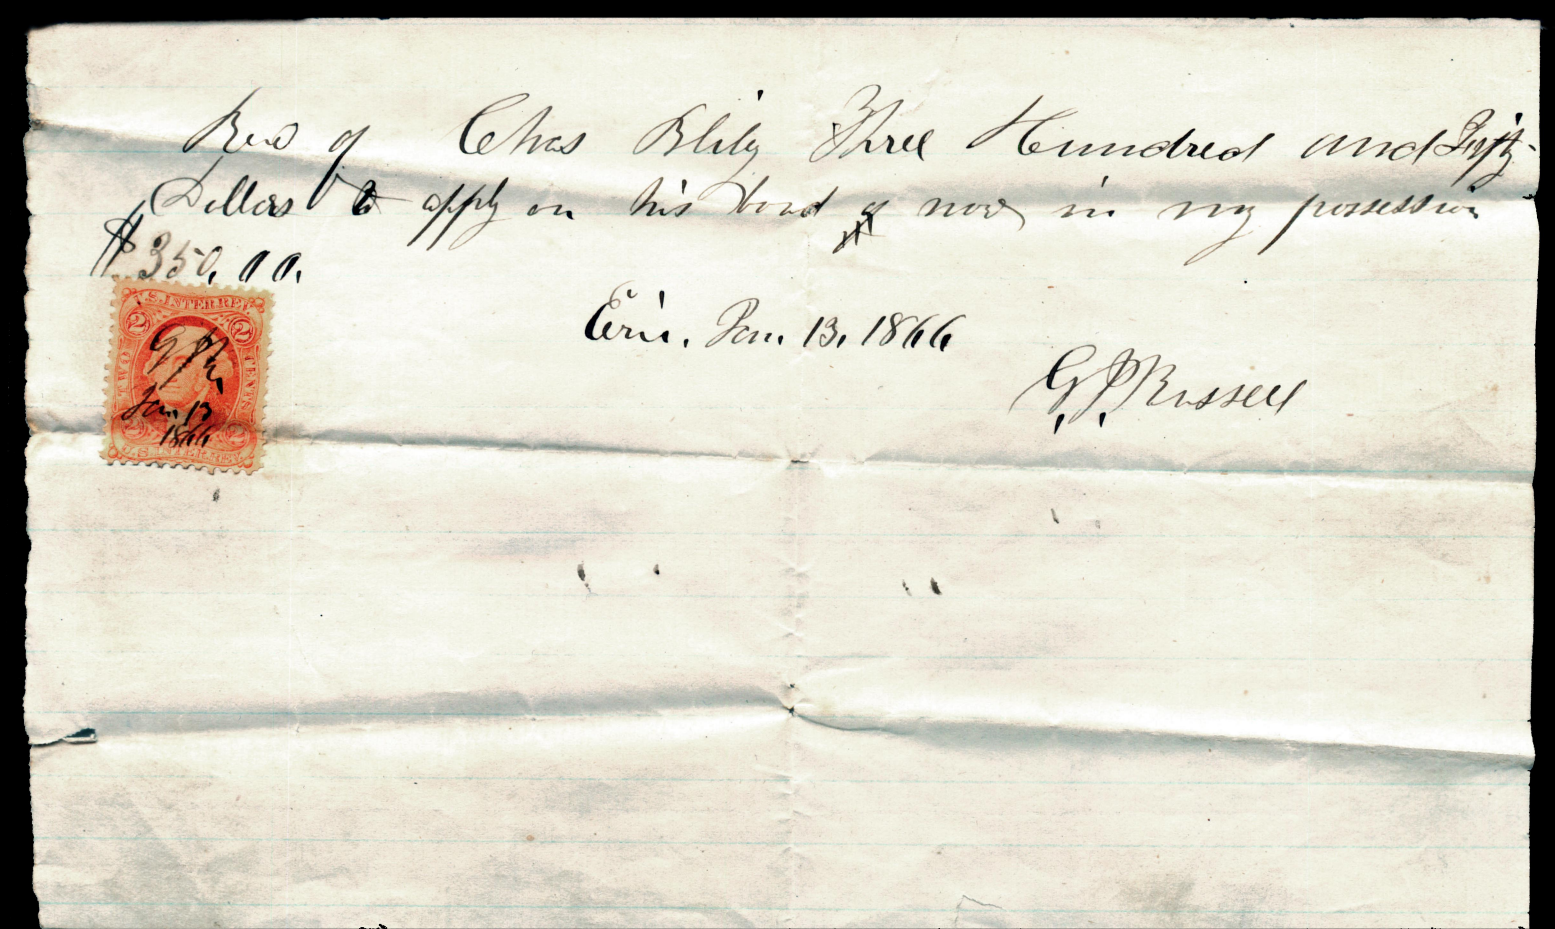 Recd of Chas Blily Three Hundred and Fifty
Dollars to apply on his bond now in my possession
$350.00.
Erin. Jan. 13, 1866
G. J. Russell
U.S. INTER. REV.
2 2
TWO CENTS
G J R
Jan. 13
1866
2 2
U.S. INTER. REV.